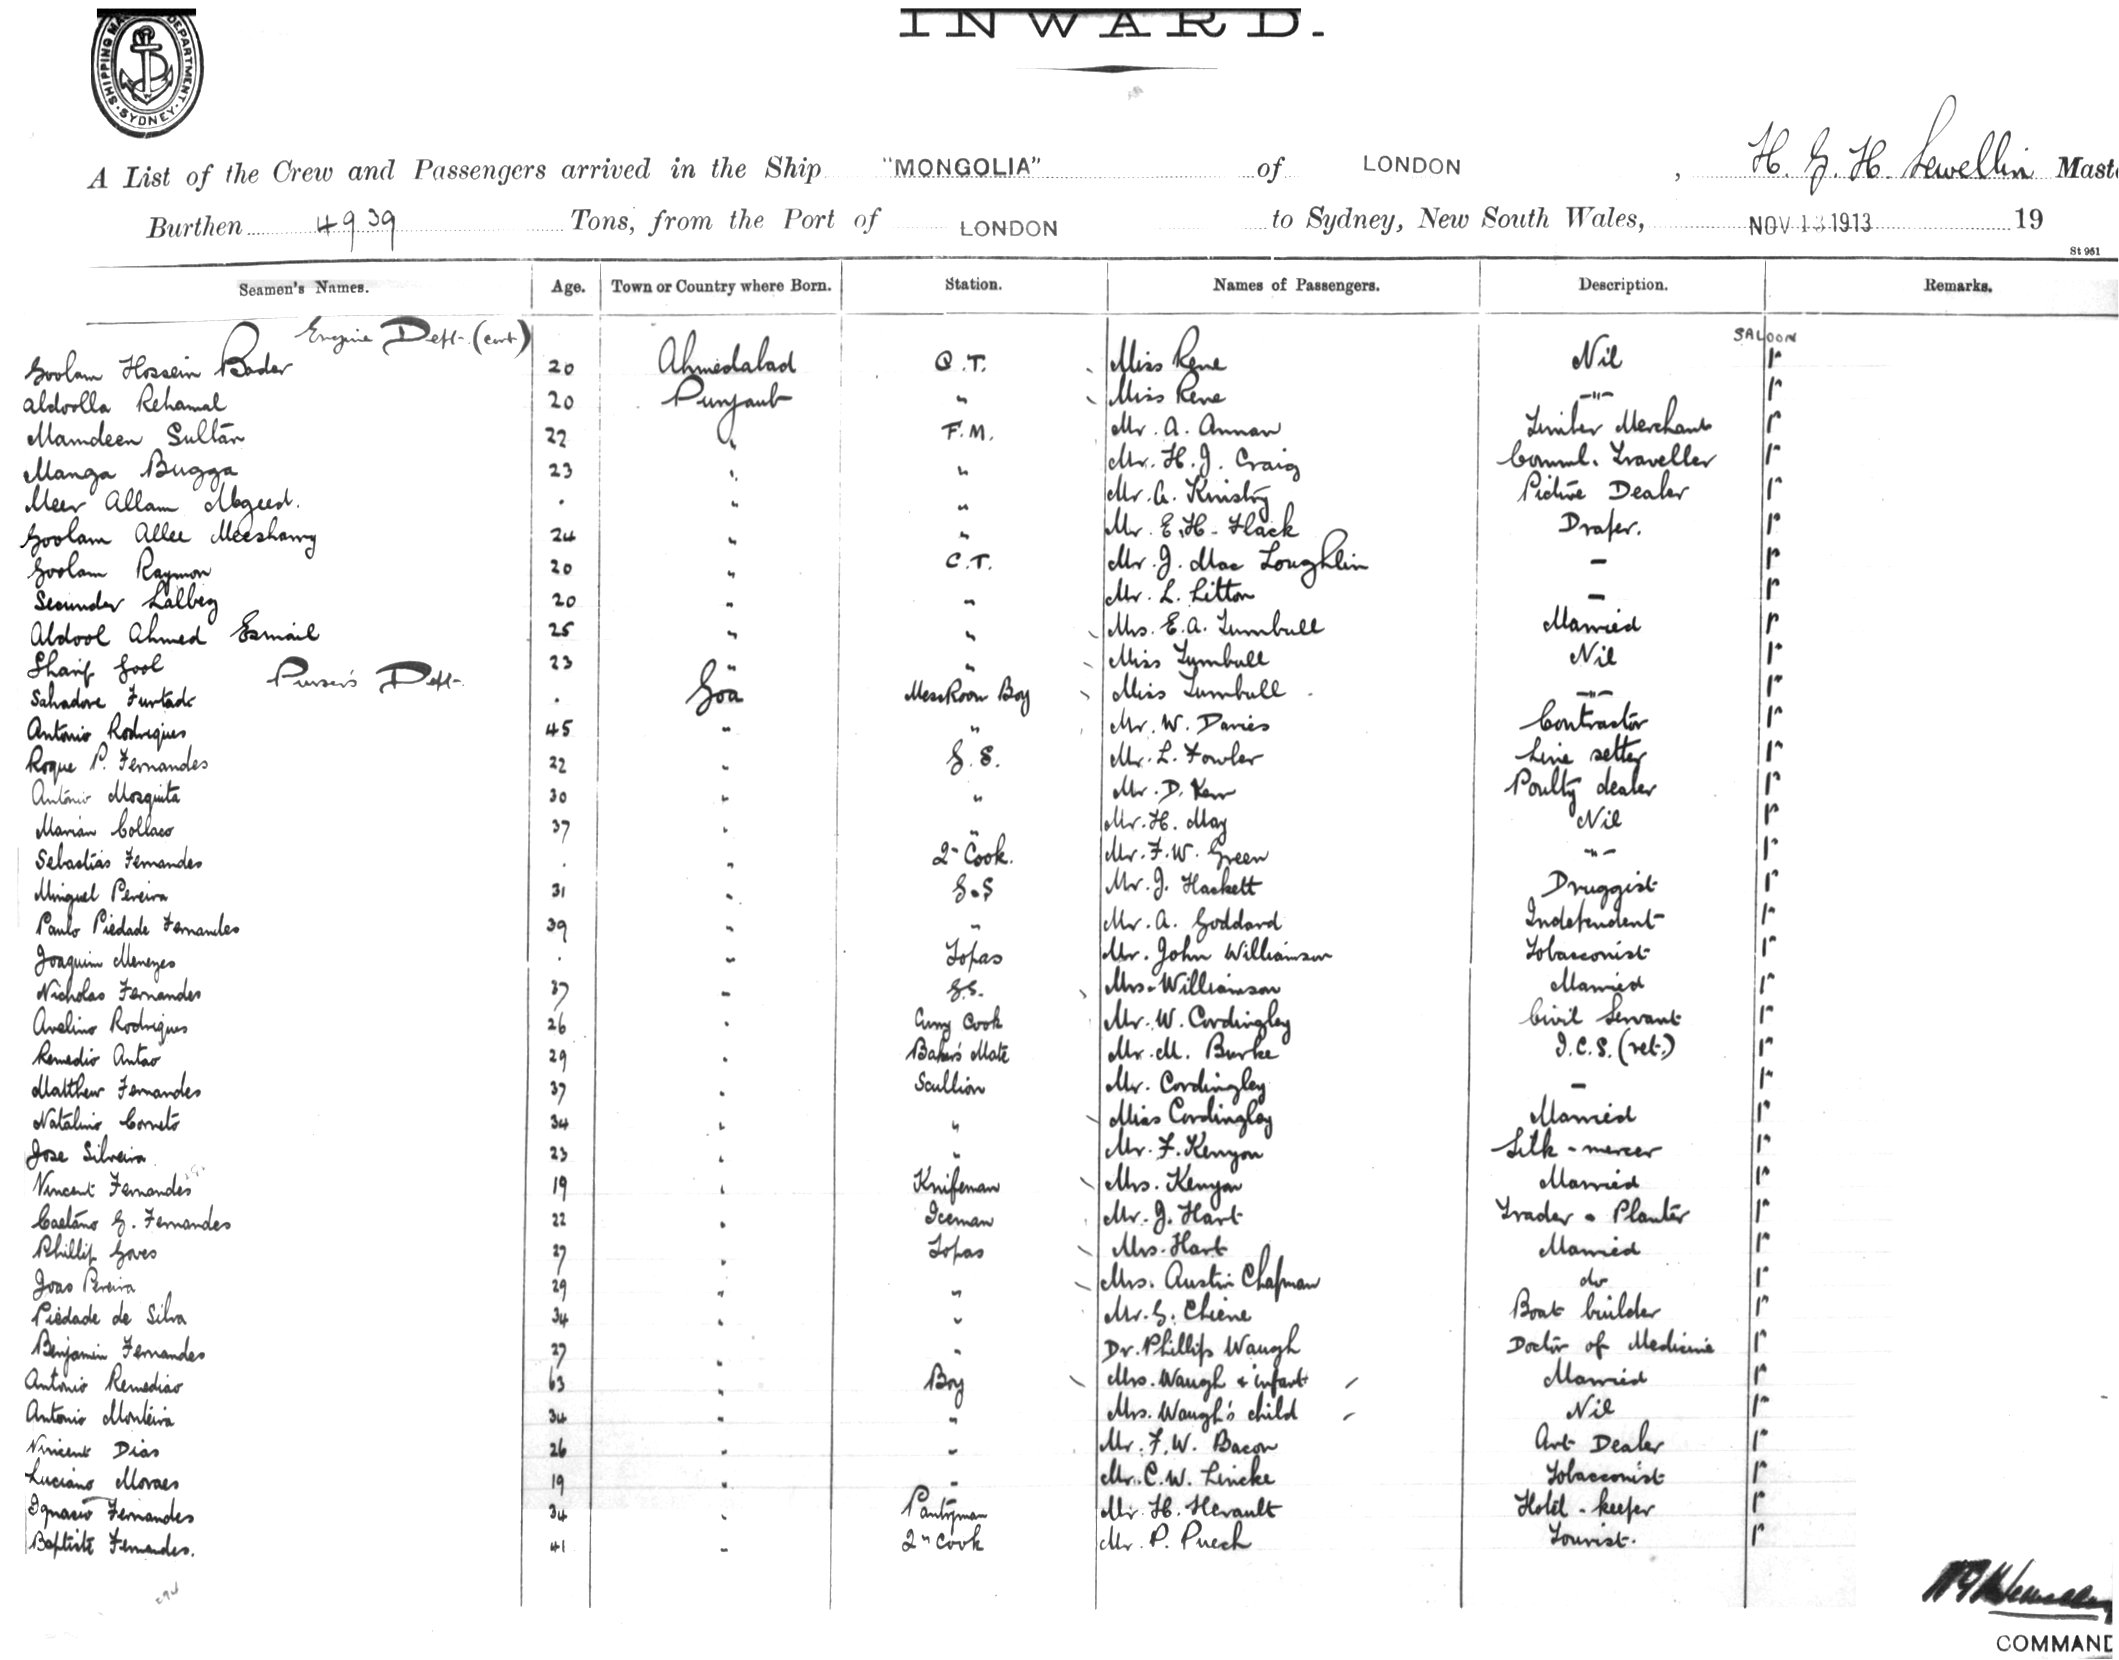 INWARD.
SHIPPING MA DEPARTMENT. SYDNEY
A List of the Crew and Passengers arrived in the Ship "MONGOLIA" of LONDON , H. G. H. Lewellin Maste
Burthen 4939 Tons, from the Port of LONDON to Sydney, New South Wales, NOV 13 1913 19
St 951
Seamen's Names. Age. Town or Country where Born. Station. Names of Passengers. Description. Remarks.
Engine Dept. (cont) SALOON
Goolam Hossein Bader 20 Ahmedabad C.T. Miss Rene Nil
Abdoolla Rehamal 20 Punjaub " Miss Rene -"-
Mamdeen Sultan 22 " F.M. Mr. A. Annan Timber Merchant
Manga Bugga 23 " " Mr. H. J. Craig Comml. Traveller
Meer Allam . " " Mr. A. Picture Dealer
Goolam Allee 24 " " Mr. E. H. Flack Draper.
Goolam Raymon 20 " C.T. Mr. J. Mac Loughlin -
Secunder Lalbeg 20 " " Mr. L. Litton -
Abdool Ahmed Esmail 25 " " Mrs. E. A. Turnbull Married
Sharif Gool 23 " " Miss Turnbull Nil
Purser's Dept.
Salvadore Furtado . Goa MessRoom Boy Miss Turnbull -"-
Antonio Rodrigues 45 " " Mr. W. Davies Contractor
Roque P. Fernandes 22 " G.S. Mr. L. Fowler Line setter
Antonio Mosquita 30 " " Mr. D. Kerr Poulty dealer
Marian Collaco 37 " " Mr. H. May Nil
Sebastiao Fernandes . " 2" Cook. Mr. F. W. Green -"-
Minguel Pereira 31 " G.S Mr. J. Hackett Druggist
Paulo Piedade Fernandes 39 " " Mr. A. Goddard Independent
Joaquim Menezes . " Topas Mr. John Williamson Tobacconist
Nicholas Fernandes 37 " G.S. Mrs. Williamson Married
Avelino Rodrigues 26 " Curry Cook Mr. W. Cordingley Civil Servant
Remedio Antao 29 " Baker's Mate Mr. M. Burke I.C.S. (ret.)
Matthew Fernandes 37 " Scullion Mr. Cordingley -
Natalino 34 " " Miss Cordingley Married
Jose Silveira 23 " " Mr. F. Kenyon Silk-mercer
Vincent Fernandes 19 " Knifeman Mrs. Kenyon Married
Caetano G. Fernandes 22 " Iceman Mr. J. Hart Trader & Planter
Phillip Goves 27 " Topas Mrs. Hart Married
Joao Pereira 29 " " Mrs. Austin Chapman do
Piedade de Silva 34 " " Mr. G. Chiene Boat builder
Benjamin Fernandes 27 " " Dr. Phillip Waugh Doctor of Medicine
Antonio Remediao 63 " Boy Mrs. Waugh & infant Married
Antonio Monteiro 34 " " Mrs. Waugh's child Nil
Vincent Dias 26 " " Mr. F. W. Bacon Art Dealer
Luciano Moraes 19 " " Mr. C. W. Lincke Tobacconist
Ignacio Fernandes 34 " Pantryman Mr. H. Herault Hotel-keeper
Baptiste Fernandes. 41 " 2" Cook Mr. P. Puech Tourist.
COMMAND